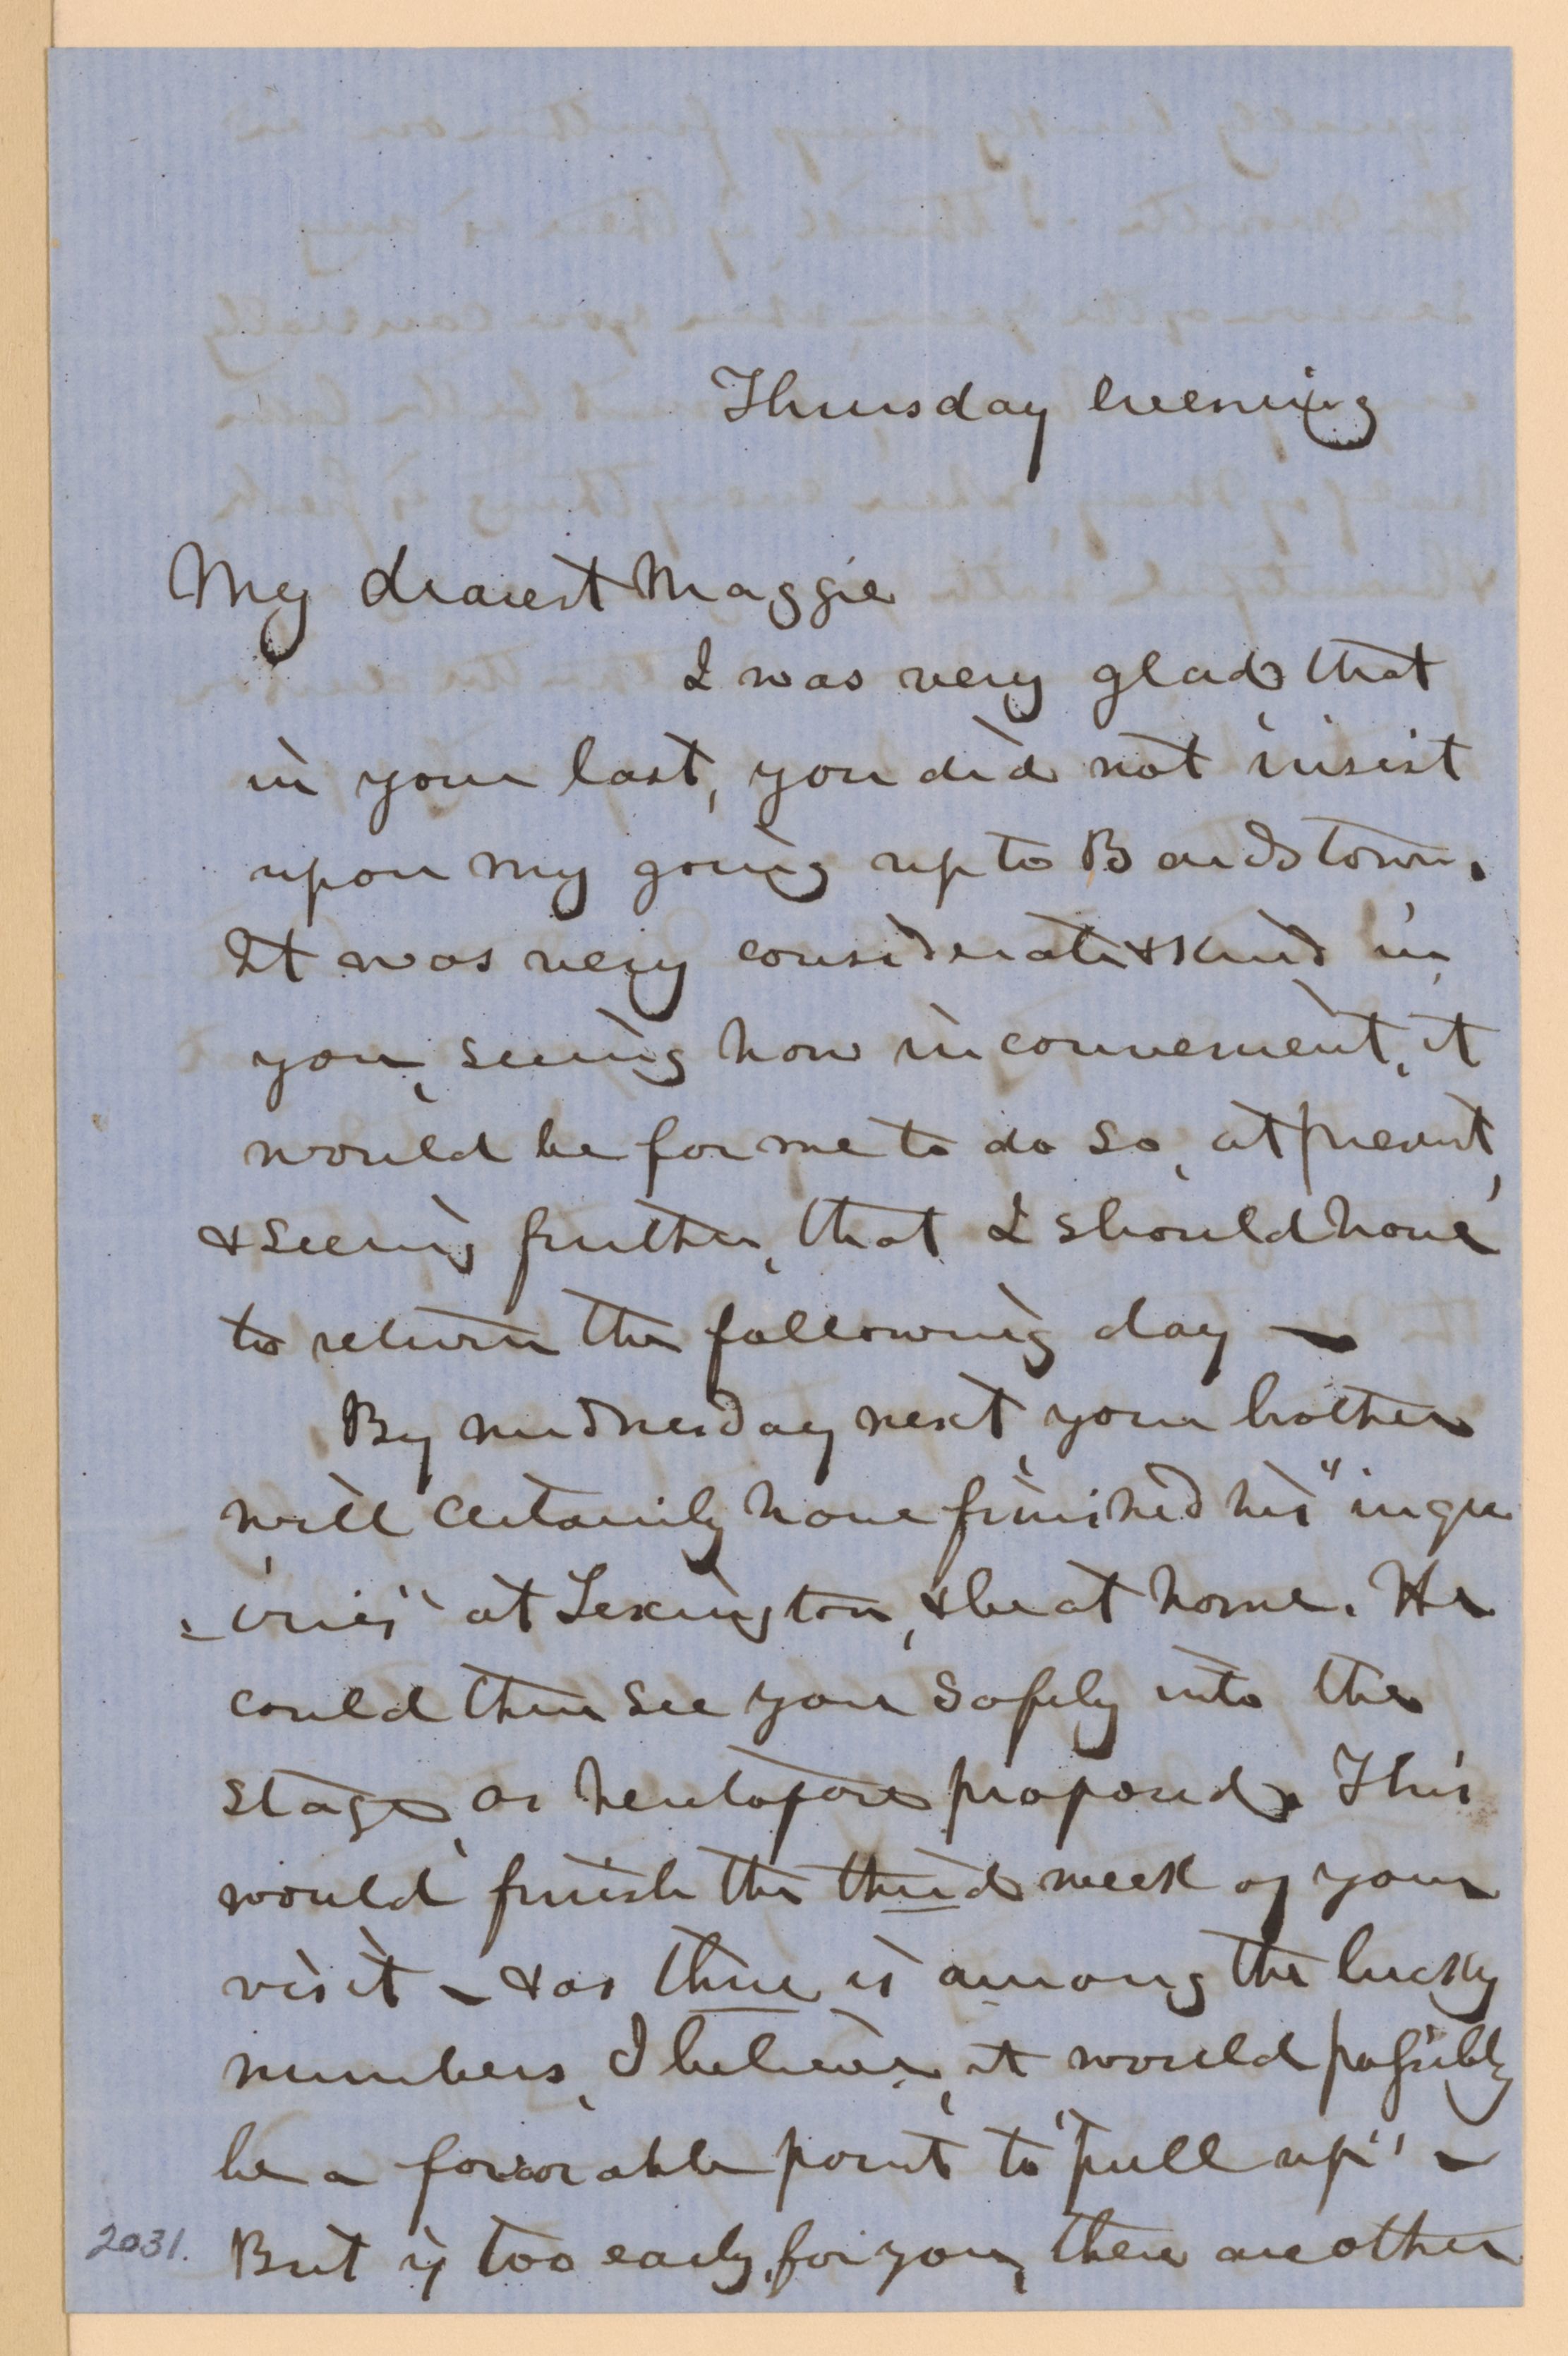 Thursday evening
My dearest Maggie
I was very glad that
in your last, you did not insist
upon my going up to Bardstown.
It was very considerate & kind in
you, seeing how inconvenient, it
would be for me to do so, at present,
& seeing further, that I should have
to return the following day –
By wednesday next, your brother
will certainly have finished his "inqu
=iries" at Lexington, & be at home. He
could then see you safely into the
stage, as heretofore proposed. This
would finish the third week of your
visit – & as three is among the lucky
numbers, I believe, it would possibly
be a favorable point to "pull up" –
2031.
But if too early, for you, there are other